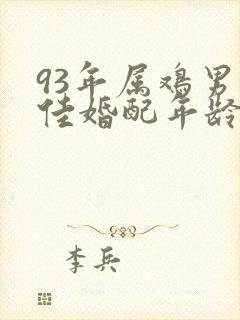 93年属鸡男
佳婚配年龄
李兵